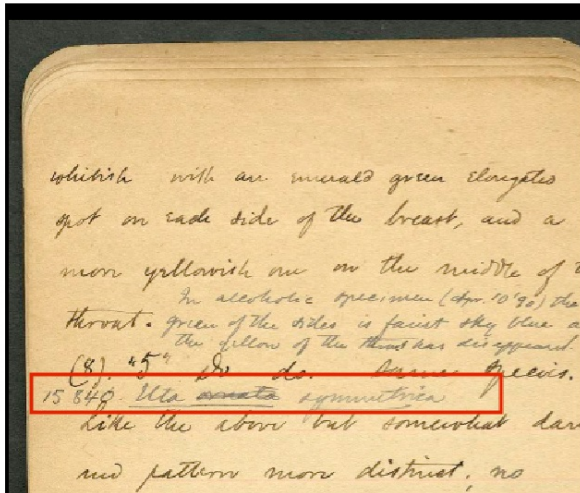 whitish with an emerald green elongated
spot on each side of the breast, and a
more yellowish one on the middle of t
In alcoholic specimen (Apr. 10 '90) the
throat. green of the sides is faint sky blue a
the yellow of the throat has disappeared
(8). "5" Do do. Same species.
15 840. Uta ornata symmetrica
Like the above but somewhat dar
and pattern more distinct, no